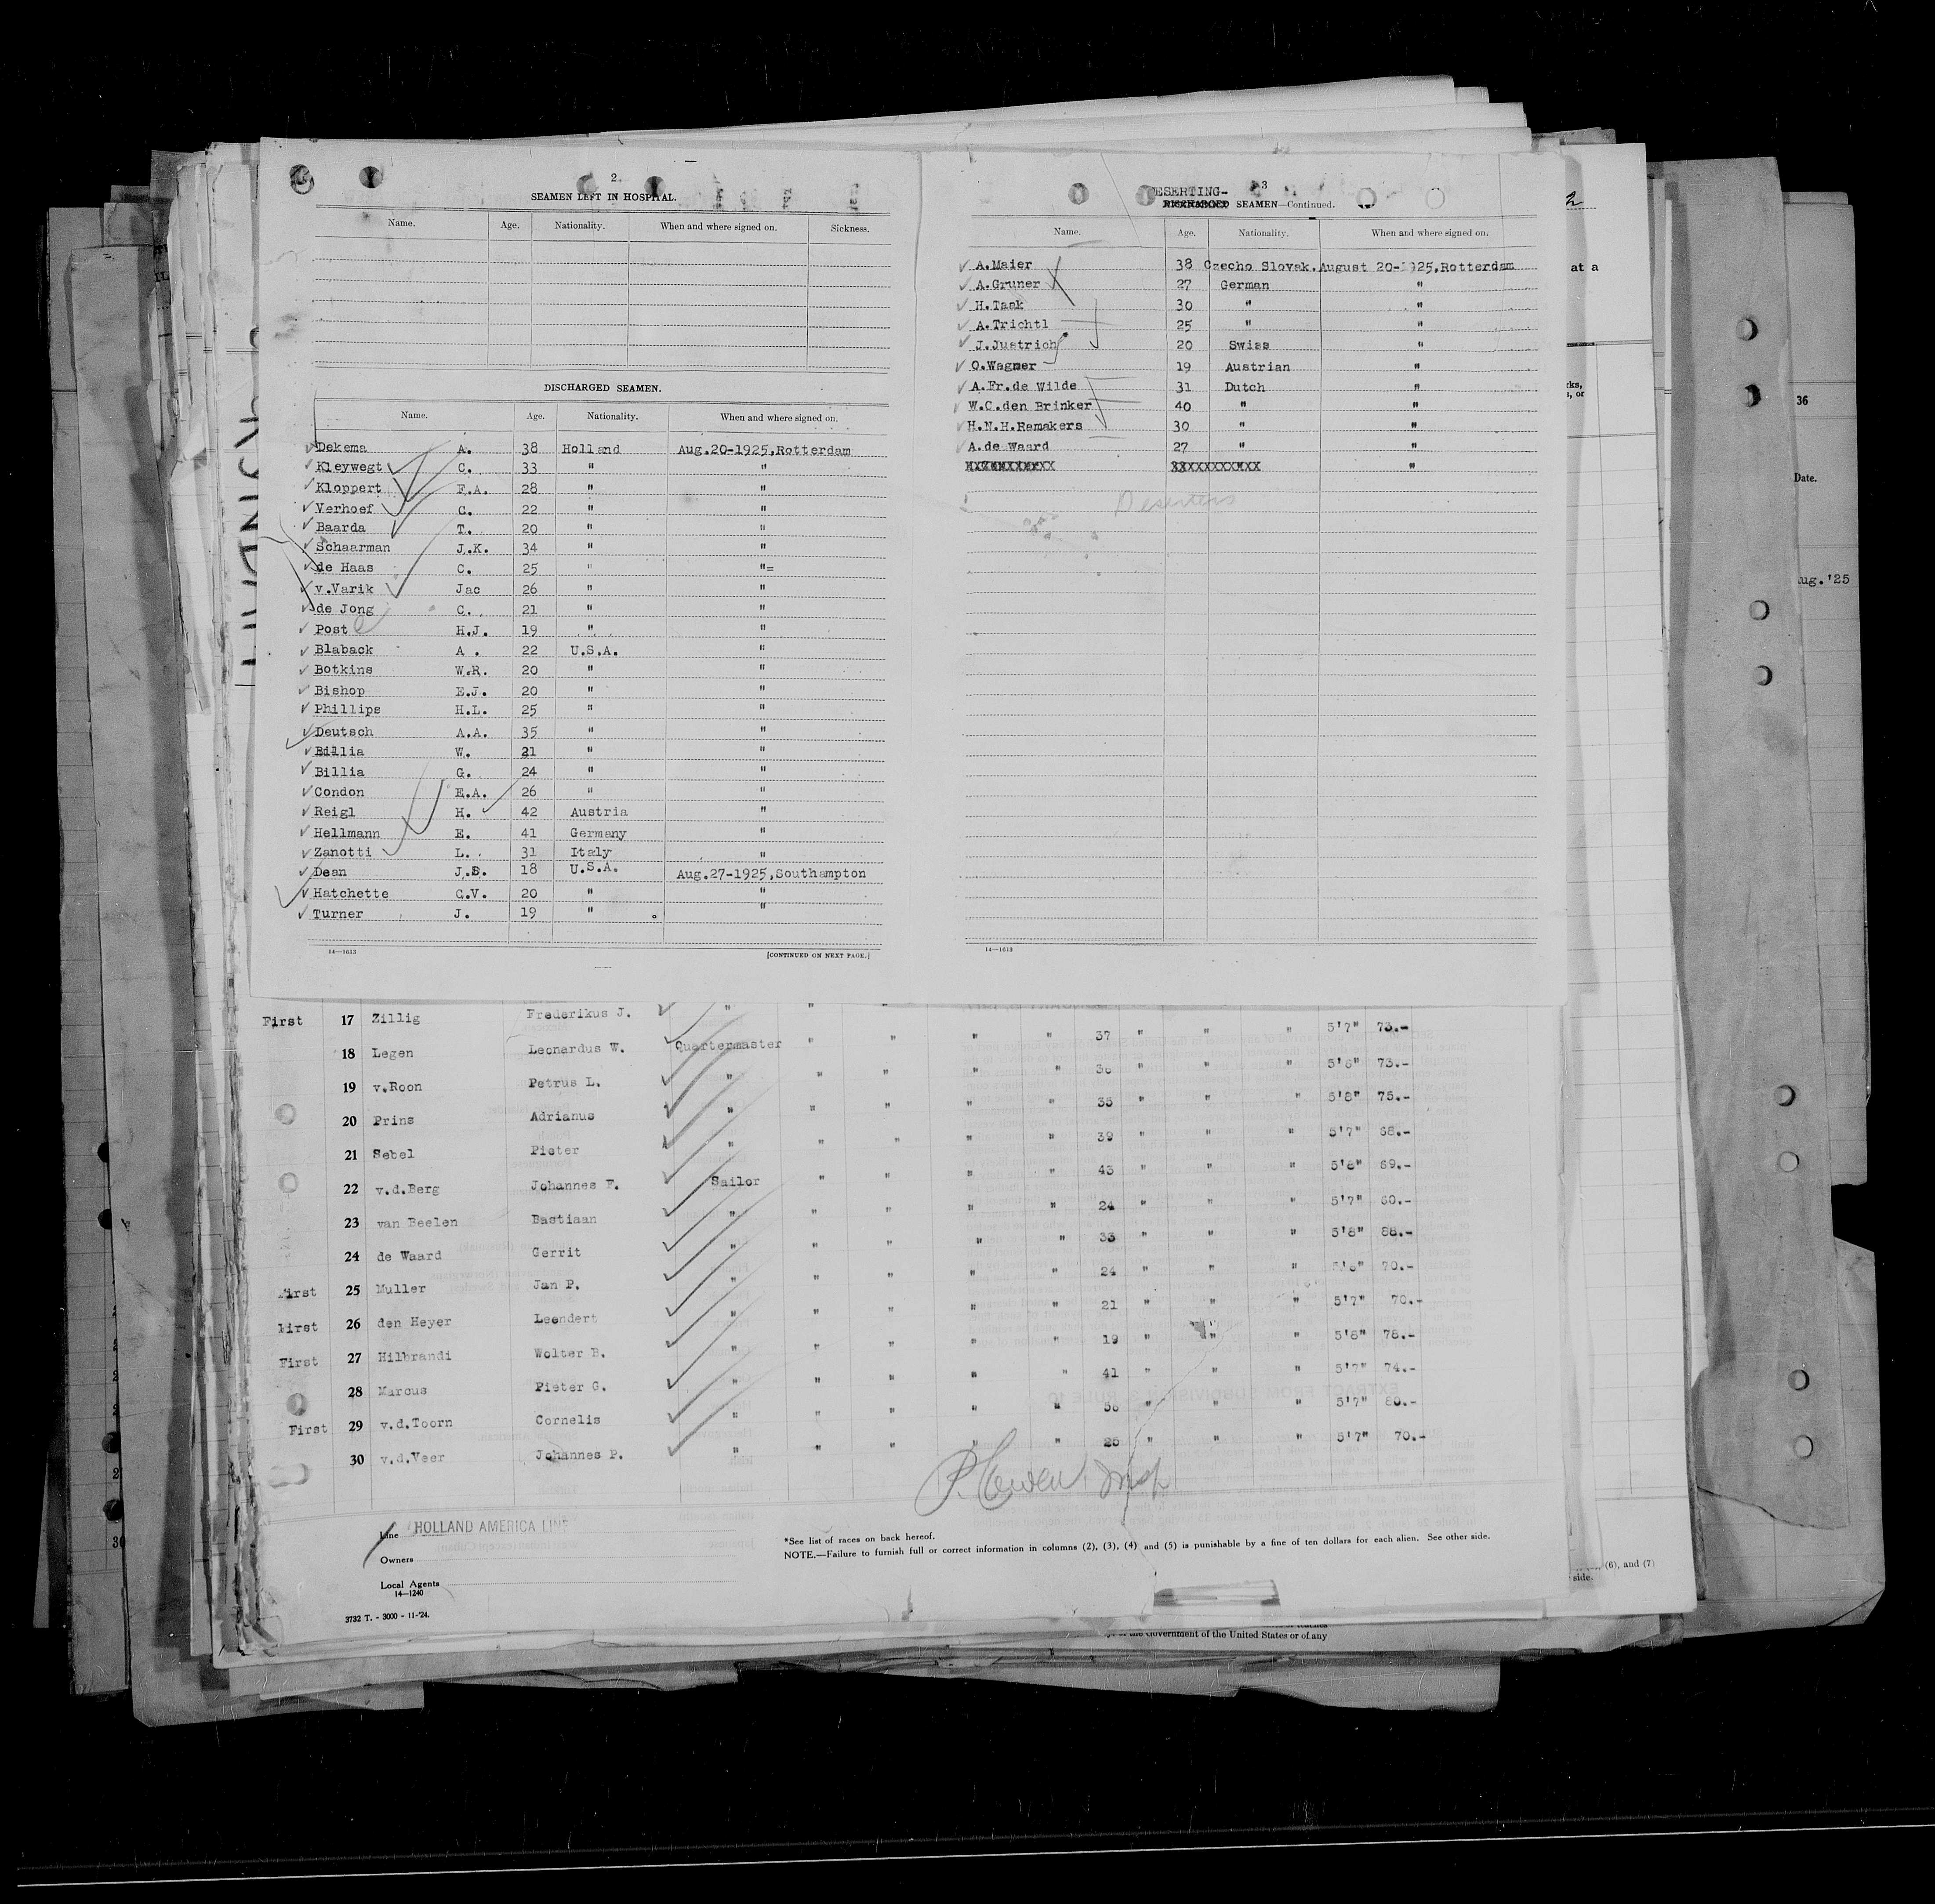 2
SEAMEN LEFT IN HOSPITAL.
Name. Age. Nationality. When and where signed on. Sickness.
DISCHARGED SEAMEN.
Name. Age. Nationality. When and where signed on.
Dekema A. 38 Holland Aug.20-1925,Rotterdam
Kleywegt C. 33 " "
Kloppert F.A. 28 " "
Verhoef C. 22 " "
Baarda T. 20 " "
Schaarman J.K. 34 " "
de Haas C. 25 " "=
v.Varik Jac 26 " "
de Jong C. 21 " "
Post H.J. 19 " "
Blaback A . 22 U.S.A. "
Botkins W.R. 20 " "
Bishop E.J. 20 " "
Phillips H.L. 25 " "
Deutsch A.A. 35 " "
Billia W. 21 " "
Billia G. 24 " "
Condon E.A. 26 " "
Reigl H. 42 Austria "
Hellmann E. 41 Germany "
Zanotti L. 31 Italy "
Dean J.S. 18 U.S.A. Aug.27-1925,Southampton
Hatchette C.V. 20 " "
Turner J. 19 " "
14—1613
[CONTINUED ON NEXT PAGE.]
3
ESERTING-
SEAMEN—Continued.
Name. Age. Nationality. When and where signed on.
A.Maier 38 Czecho Slovak. August 20-1925,Rotterdam
A.Gruner 27 German "
H.Taak 30 " "
A.Trichtl 25 " "
J.Justrich 20 Swiss "
O.Wagner 19 Austrian "
A.Fr.de Wilde 31 Dutch "
W.C.den Brinker 40 " "
H.N.H.Remakers 30 " "
A.de Waard 27 " "
"
Deserters
14—1613
First 17 Zillig Frederikus J. " " " " " 37 " " " 5'7" 73.-
18 Legen Leonardus W. Quartermaster " " " " 36 " " " 5'6" 73.-
19 v.Roon Petrus L. " " " " " 35 " " " 5'8" 75.-
20 Prins Adrianus " " " " " 39 " " " 5'7" 68.-
21 Sebel Pieter " " " " " 43 " " " 5'6" 69.-
22 v.d.Berg Johannes F. Sailor " " " " 24 " " " 5'7" 60.-
23 van Beelen Bastiaan " " " " " 33 " " " 5'8" 88.-
24 de Waard Gerrit " " " " " 24 " " " 5'6" 70.-
First 25 Muller Jan P. " " " " " 21 " " " 5'7" 70.-
First 26 den Heyer Leendert " " " " " 19 " " " 5'8" 78.-
First 27 Hilbrandi Wolter B. " " " " " 41 " " " 5'7" 74.-
28 Marcus Pieter G. " " " " " 56 " " " 5'7" 80.-
First 29 v.d.Toorn Cornelis " " " " " 25 " " " 5'7" 70.-
30 v.d.Veer Johannes P. "
Line HOLLAND AMERICA LINE
Owners
Local Agents
14—1240
3732 T. - 3000 - 11-'24.
*See list of races on back hereof.
NOTE.—Failure to furnish full or correct information in columns (2), (3), (4) and (5) is punishable by a fine of ten dollars for each alien. See other side.
at a
36
Date.
ug.'25
(6), and (7)
side.
Government of the United States or of any
30